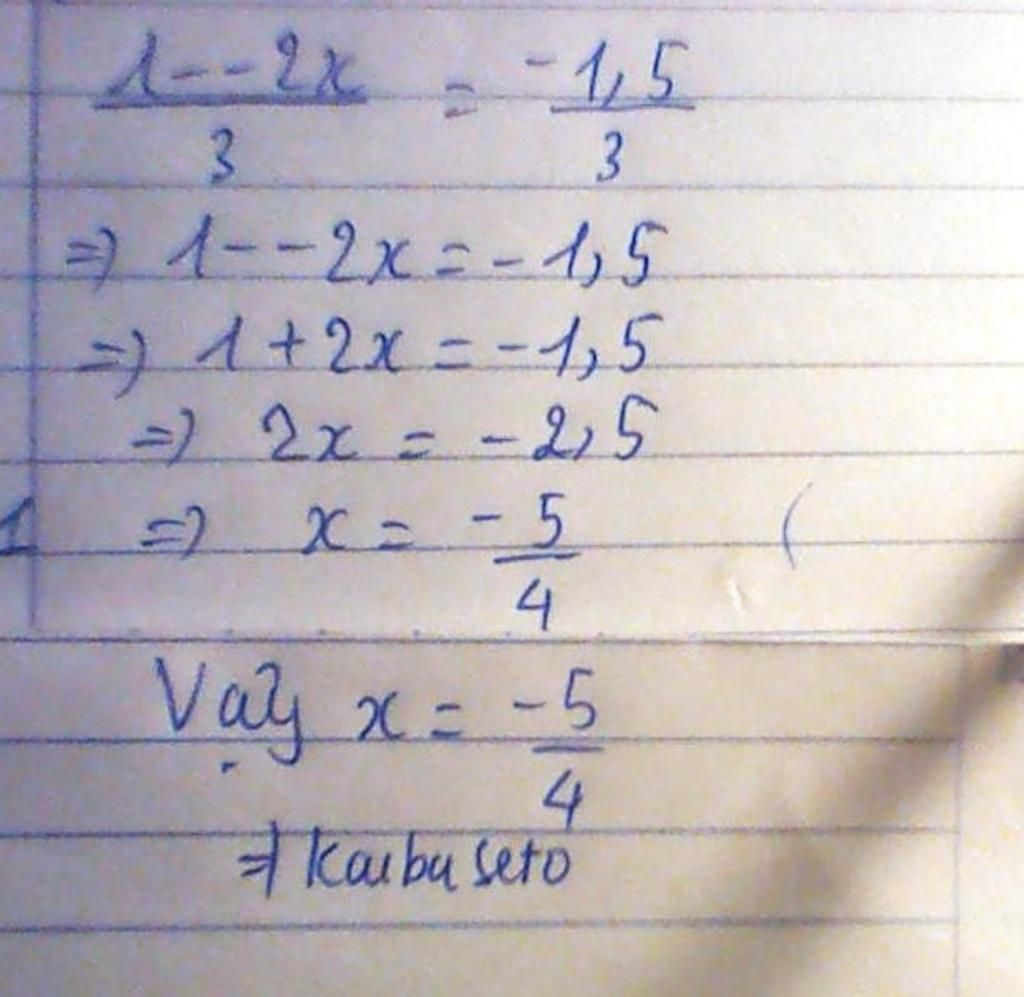 1--2x / 3 = -1,5 / 3
=) 1--2x = -1,5
=) 1+2x = -1,5
=) 2x = -2,5
1 =) x = -5/4 (
Vậy x = -5/4
=) Kaibaseto